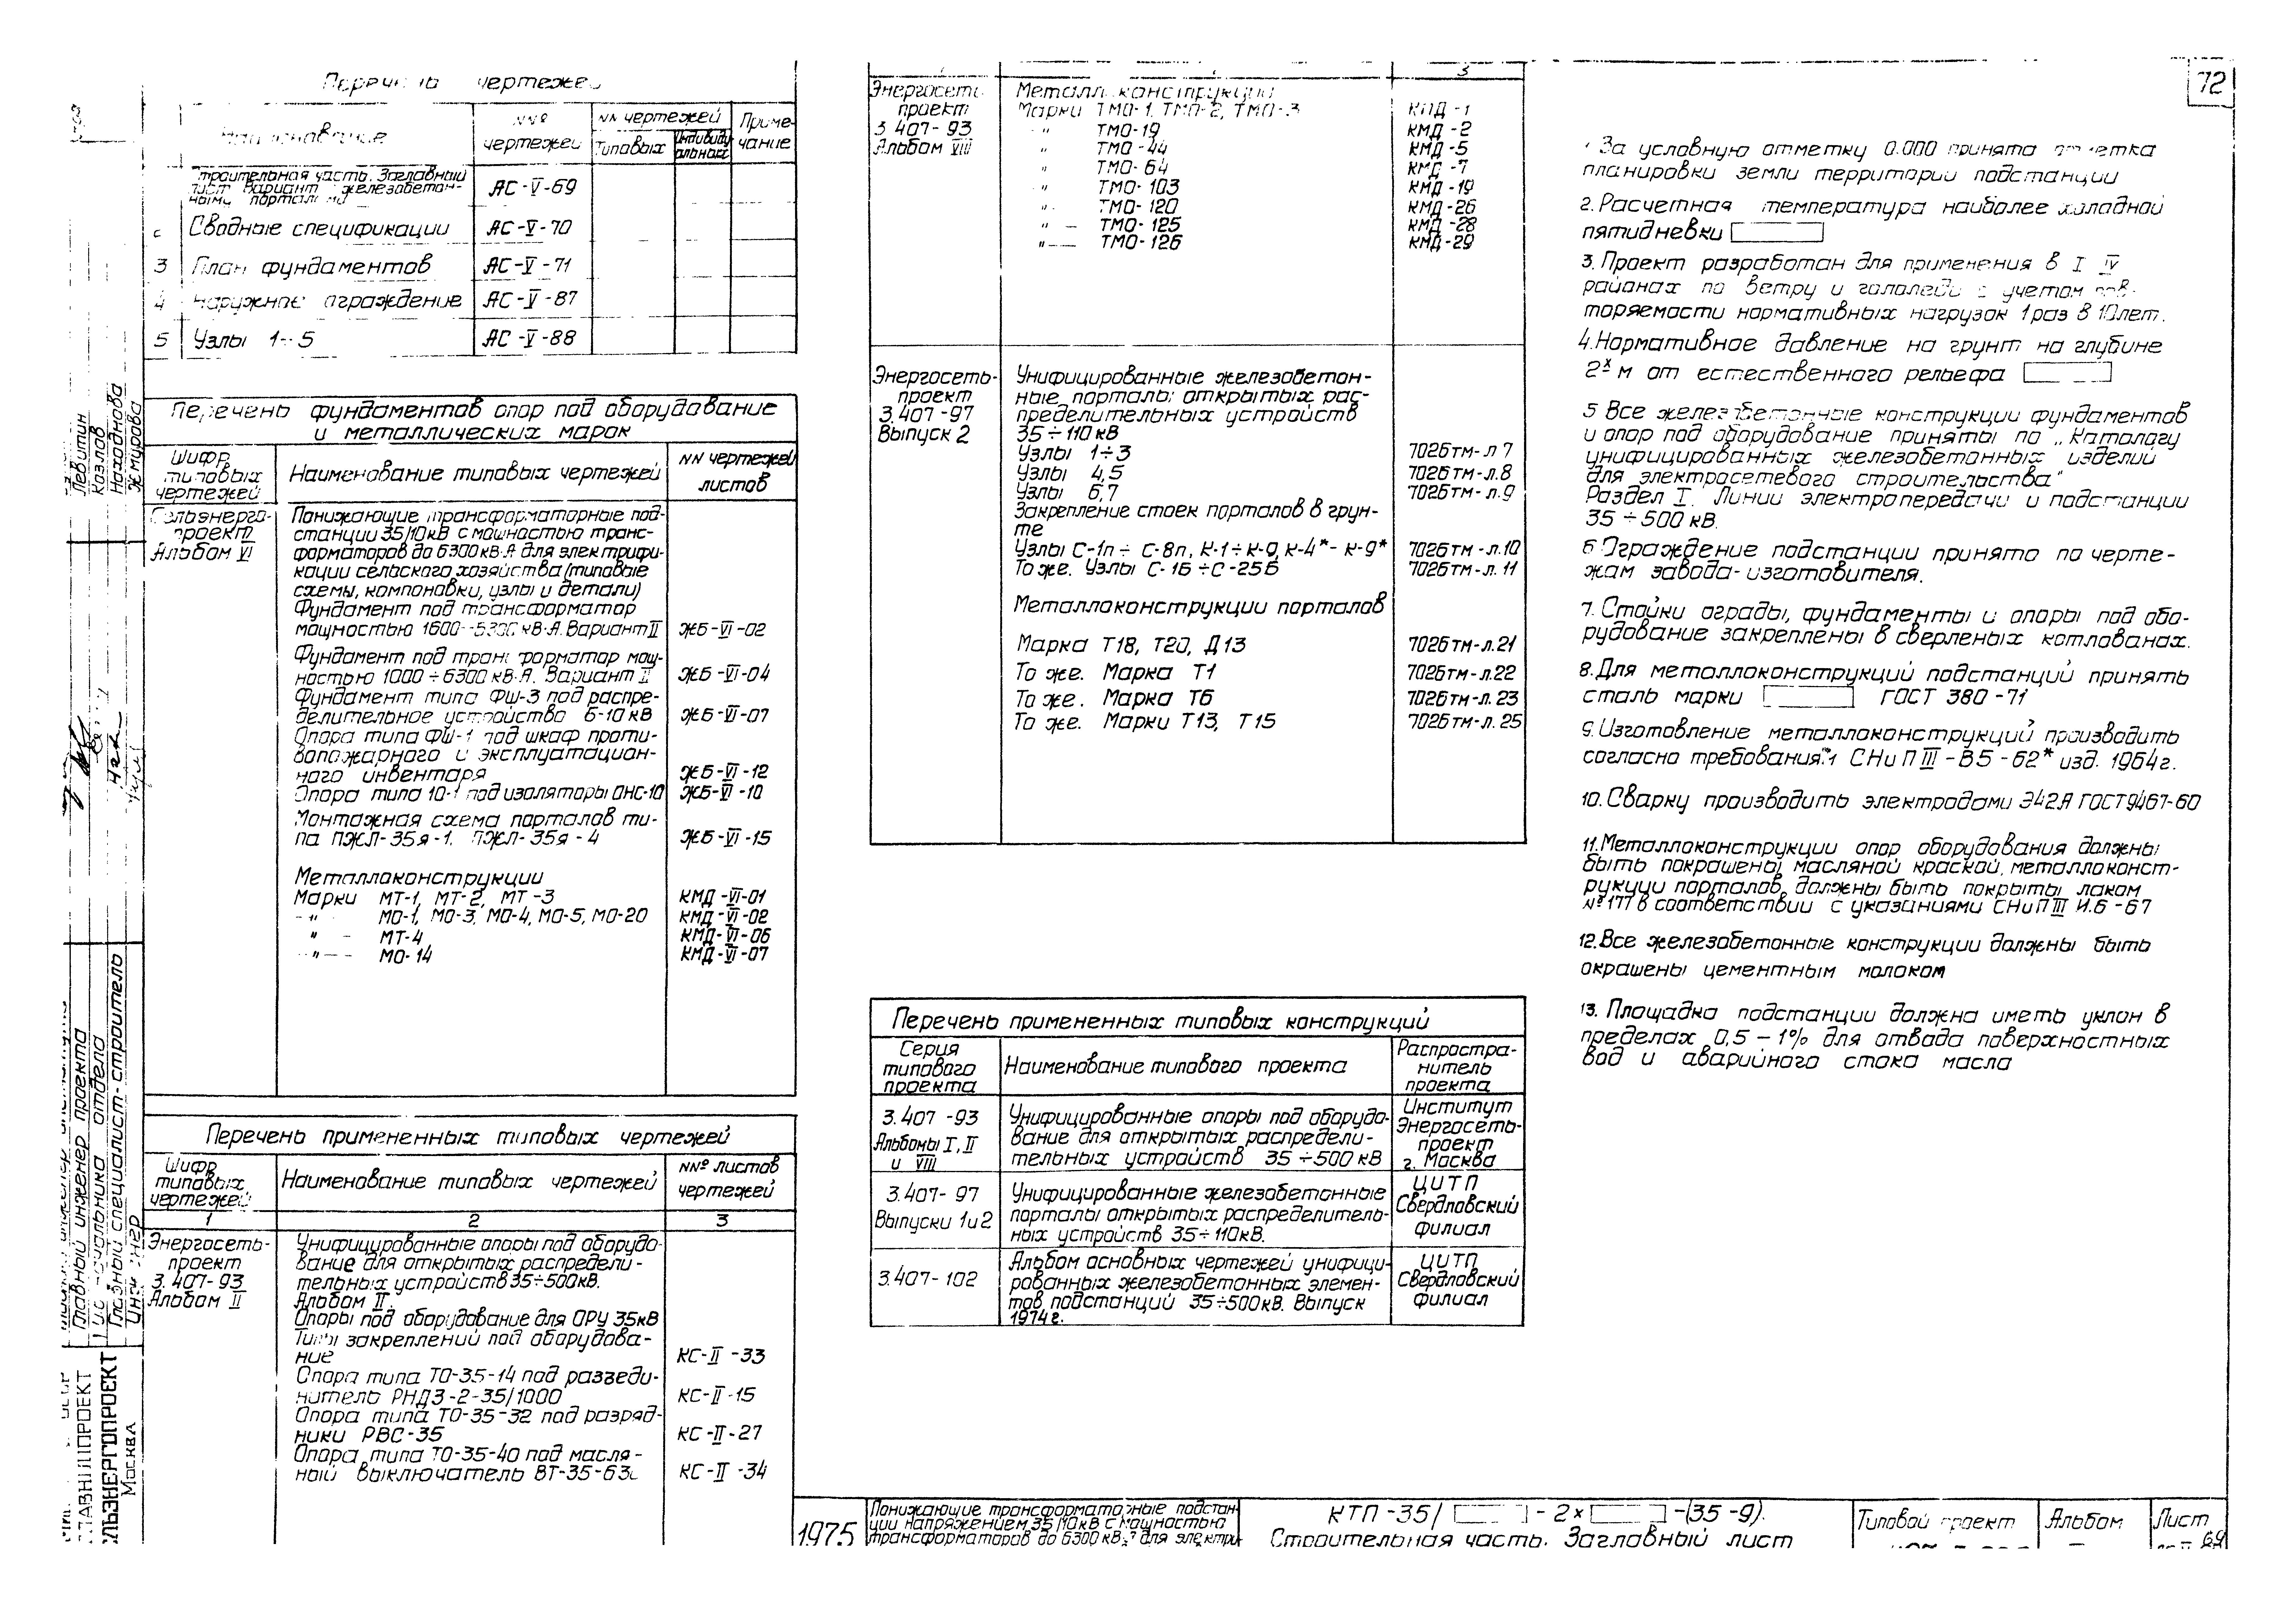 72
чертежей
NNº чертежей
NN чертежей
Типовых
Индивидуальных
Примечание
Строительная часть. Заглавный
лист Вариант с железобетон-
ными порталами
АС-V-69
Сводные спецификации АС-V-70
3 План фундаментов АС-V-71
4 Наружное ограждение АС-V-87
5 Узлы 1÷5 АС-V-88
Перечень фундаментов опор под оборудование
и металлических марок
Шифр
типовых
чертежей
Наименование типовых чертежей
NN чертежей
листов
Сельэнерго-
проект
Альбом VI
Понижающие трансформаторные под-
станции 35/10кВ с мощностью транс-
форматоров до 6300кВ·А для электрифи-
кации сельского хозяйства (типовые
схемы, компоновки, узлы и детали)
Фундамент под трансформатор
мощностью 1600-6300 кВ·А. Вариант II ЖБ-VI-02
Фундамент под трансформатор мощ-
ностью 1000÷6300 кВ·А. Вариант II ЖБ-VI-04
Фундамент типа ФШ-3 под распре-
делительное устройство 6-10кВ ЖБ-VI-07
Опора типа ФШ-1 под шкаф проти-
вопожарного и эксплуатацион-
ного инвентаря ЖБ-VI-12
Опора типа 10-1 под изоляторы ОНС-10 ЖБ-VI-10
Монтажная схема порталов ти-
па ПЖЛ-35я-1, ПЖЛ-35я-4 ЖБ-VI-15
Металлоконструкции
Марки МТ-1, МТ-2, МТ-3 КМД-VI-01
-"- МО-1, МО-3, МО-4, МО-5, МО-20 КМД-VI-02
" - МТ-4 КМД-VI-06
-"- МО-14 КМД-VI-07
Перечень примененных типовых чертежей
Шифр
типовых
чертежей
Наименование типовых чертежей
NNº листов
чертежей
1 2 3
Энергосеть-
проект
3.407-93
Альбом II
Унифицированные опоры под оборудо-
вание для открытых распредели-
тельных устройств 35÷500кВ.
Альбом II
Опоры под оборудование для ОРУ 35кВ
Типы закреплений под оборудова-
ние КС-II-33
Опора типа ТО-35-14 под разъеди-
нитель РНДЗ-2-35/1000 КС-II-15
Опора типа ТО-35-32 под разряд-
ники РВС-35 КС-II-27
Опора типа ТО-35-40 под масля-
ный выключатель ВТ-35-630 КС-II-34
3
Энергосеть
проект
3.407-93
Альбом VIII
Металлоконструкции
Марки ТМО-1, ТМО-2, ТМО-3 КМД-1
" ТМО-19 КМД-2
" ТМО-44 КМД-5
" ТМО-64 КМД-7
" ТМО-103 КМД-19
" ТМО-120 КМД-26
" — ТМО-125 КМД-28
" — ТМО-126 КМД-29
Энергосеть-
проект
3.407-97
Выпуск 2
Унифицированные железобетон-
ные порталы открытых рас-
пределительных устройств
35÷110кВ
Узлы 1÷3 7026тм-л 7
Узлы 4,5 7026тм-л.8
Узлы 6,7 7026тм-л.9
Закрепление стоек порталов в грун-
те
Узлы С-1п÷С-8п, К-1÷К-9, К-4*-К-9* 7026тм-л.10
То же. Узлы С-16÷С-256 7026тм-л.11
Металлоконструкции порталов
Марка Т18, Т20, Д13 7026тм-л.21
То же. Марка Т1 7026тм-л.22
То же. Марка Т6 7026тм-л.23
То же. Марки Т13, Т15 7026тм-л.25
Перечень примененных типовых конструкций
Серия
типового
проекта
Наименование типового проекта
Распростра-
нитель
проекта
3.407-93
Альбомы I, II
и VIII
Унифицированные опоры под оборудо-
вание для открытых распредели-
тельных устройств 35÷500кВ
Институт
Энергосеть-
проект
г. Москва
3.407-97
Выпуски 1и2
Унифицированные железобетонные
порталы открытых распределитель-
ных устройств 35÷110кВ.
ЦИТП
Свердловский
филиал
3.407-102
Альбом основных чертежей унифици-
рованных железобетонных элемен-
тов подстанций 35÷500кВ. Выпуск
1974г.
ЦИТП
Свердловский
филиал
1 За условную отметку 0.000 принята отметка
планировки земли территории подстанции
2. Расчетная температура наиболее холодной
пятидневки
3. Проект разработан для применения в I IV
районах по ветру и гололеду с учетом пов-
торяемости нормативных нагрузок 1раз в 10лет.
4. Нормативное давление на грунт на глубине
2х м от естественного рельефа
5 Все железобетонные конструкции фундаментов
и опор под оборудование приняты по „Каталогу
унифицированных железобетонных изделий
для электросетевого строительства"
Раздел I. Линии электропередачи и подстанции
35÷500 кВ.
6. Ограждение подстанции принято по черте-
жам завода-изготовителя.
7. Стойки ограды, фундаменты и опоры под обо-
рудование закреплены в сверленых котлованах.
8. Для металлоконструкций подстанций принять
сталь марки ГОСТ 380-71
9. Изготовление металлоконструкций производить
согласно требований СНиП III-В5-62* изд. 1964г.
10. Сварку производить электродами Э42А ГОСТ9467-60
11. Металлоконструкции опор оборудования должны
быть покрашены масляной краской, металлоконст-
рукции порталов должны быть покрыты лаком
№177 в соответствии с указаниями СНиП III И.6-67
12. Все железобетонные конструкции должны быть
окрашены цементным молоком
13. Площадка подстанции должна иметь уклон в
пределах 0,5-1% для отвода поверхностных
вод и аварийного стока масла
Левитин
Козлов
Находнова
Жмурова
Главный инженер проекта
отдела
Главный специалист-строитель
Москва
1975
Понижающие трансформаторные подстан-
ции напряжением 35/10кВ с мощностью
трансформаторов до 6300 кВ·А для электри-
КТП-35/ -2х -(35-9).
Строительная часть. Заглавный лист
Типовой проект
Альбом
Лист
69